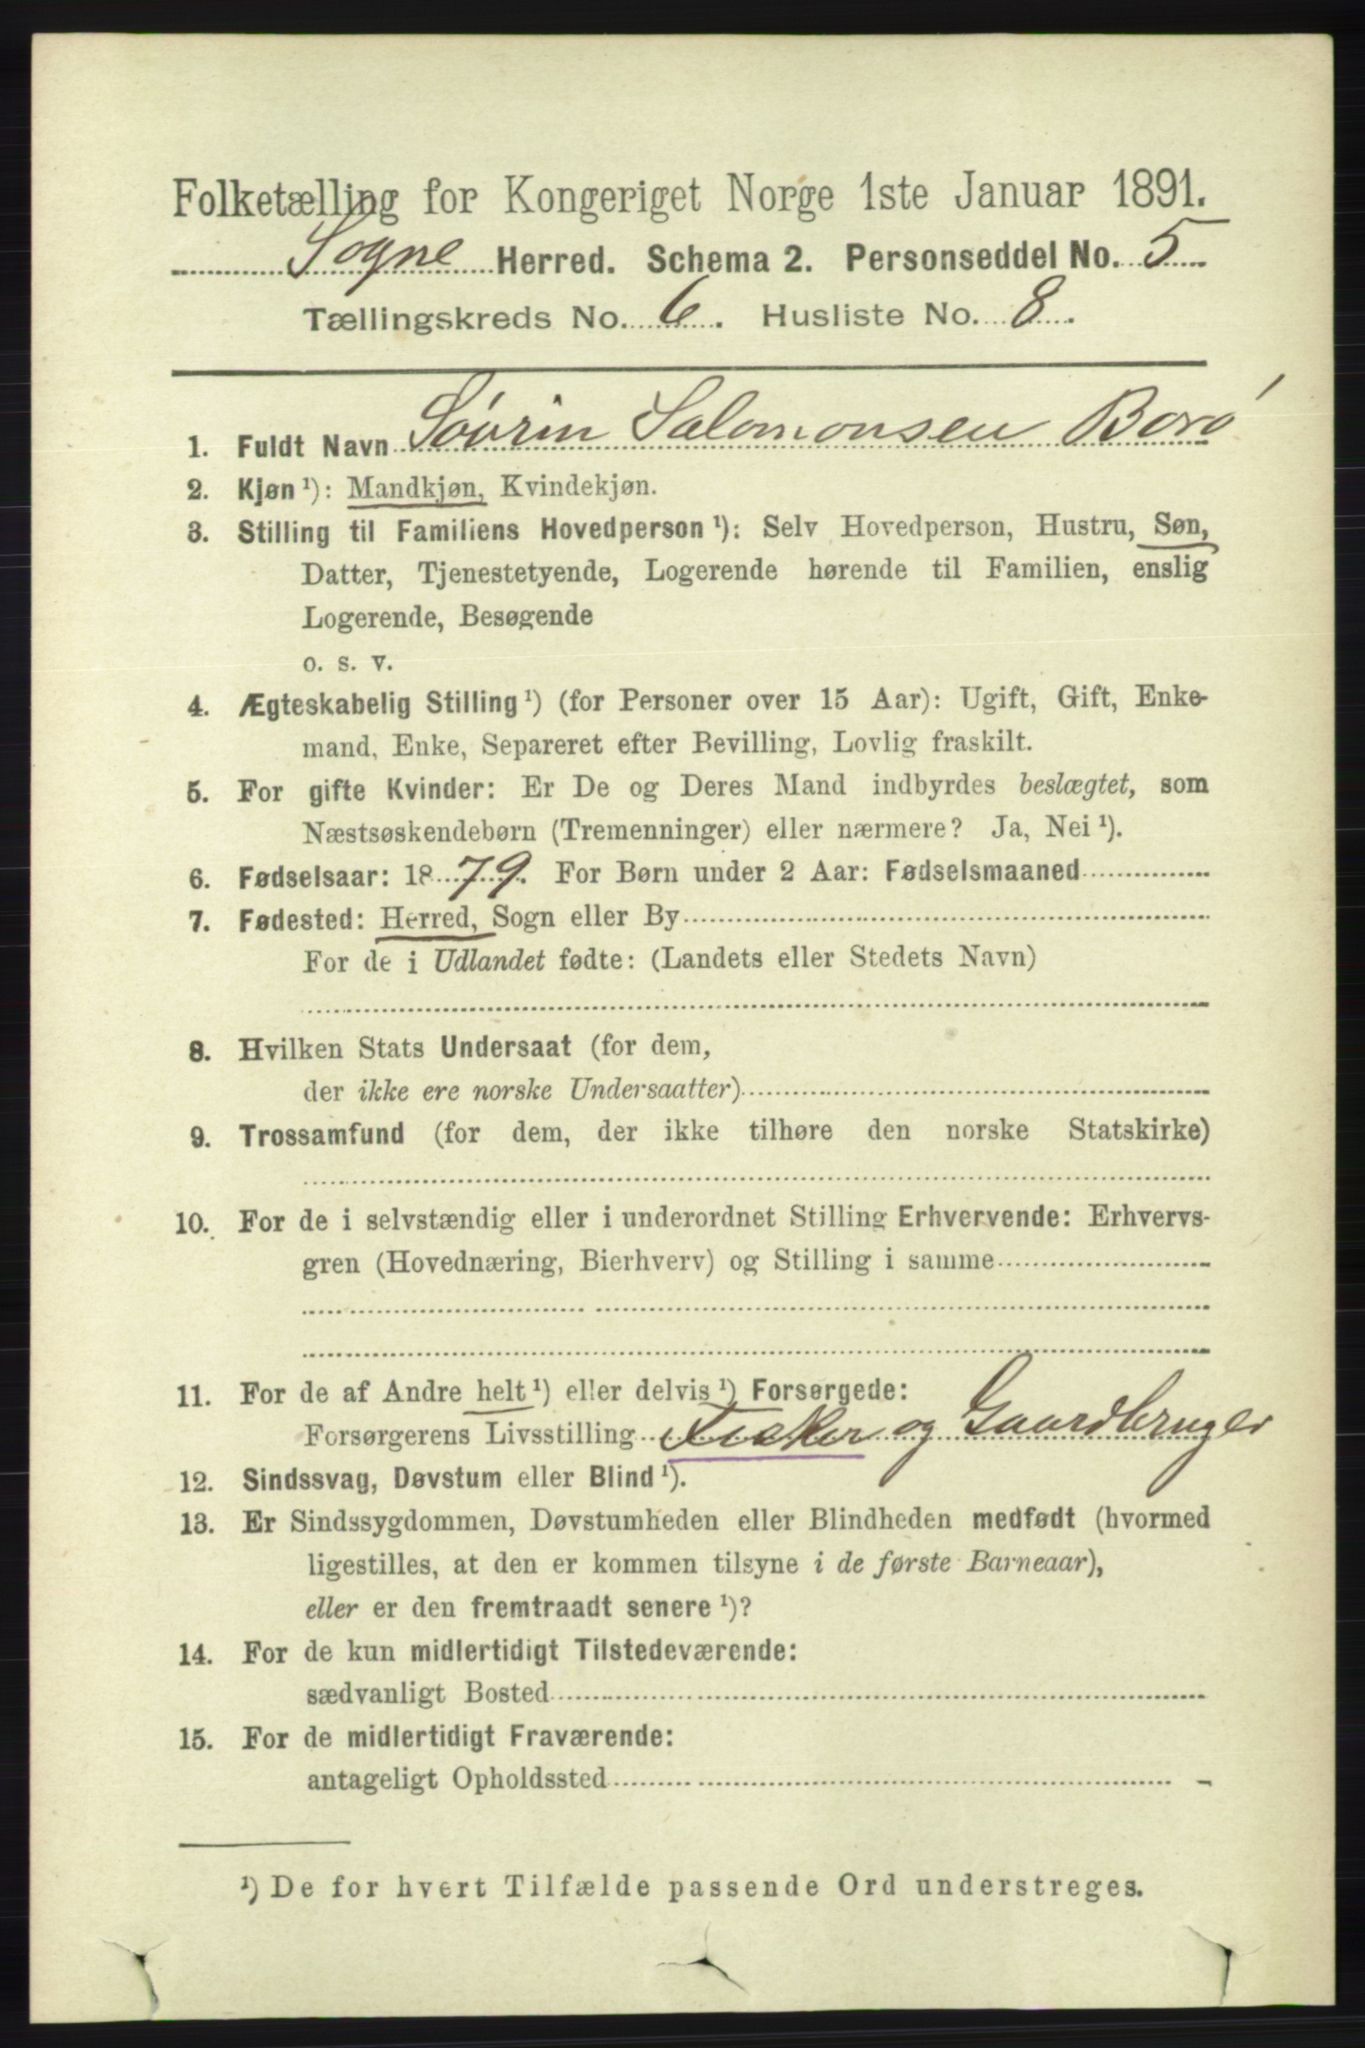 Folketælling for Kongeriget Norge 1ste Januar 1891.
Sogne Herred. Schema 2. Personseddel No. 5
Tællingskreds No. 6. Husliste No. 8.
1. Fuldt Navn Sövrin Salomonsen Borö
2. Kjøn ¹): Mandkjøn, Kvindekjøn.
3. Stilling til Familiens Hovedperson ¹): Selv Hovedperson, Hustru, Søn,
Datter, Tjenestetyende, Logerende hørende til Familien, enslig
Logerende, Besøgende
o. s. v.
4. Ægteskabelig Stilling ¹) (for Personer over 15 Aar): Ugift, Gift, Enke-
mand, Enke, Separeret efter Bevilling, Lovlig fraskilt.
5. For gifte Kvinder: Er De og Deres Mand indbyrdes beslægtet, som
Næstsøskendebørn (Tremenninger) eller nærmere? Ja, Nei ¹).
6. Fødselsaar: 1879. For Børn under 2 Aar: Fødselsmaaned
7. Fødested: Herred, Sogn eller By
For de i Udlandet fødte: (Landets eller Stedets Navn)
8. Hvilken Stats Undersaat (for dem,
der ikke ere norske Undersaatter)
9. Trossamfund (for dem, der ikke tilhøre den norske Statskirke)
10. For de i selvstændig eller i underordnet Stilling Erhvervende: Erhvervs-
gren (Hovednæring, Bierhverv) og Stilling i samme
11. For de af Andre helt ¹) eller delvis ¹) Forsørgede:
Forsørgerens Livsstilling Fisker og Gaardbruger
12. Sindssvag, Døvstum eller Blind ¹).
13. Er Sindssygdommen, Døvstumheden eller Blindheden medfødt (hvormed
ligestilles, at den er kommen tilsyne i de første Barneaar),
eller er den fremtraadt senere ¹)?
14. For de kun midlertidigt Tilstedeværende:
sædvanligt Bosted
15. For de midlertidigt Fraværende:
antageligt Opholdssted
¹) De for hvert Tilfælde passende Ord understreges.